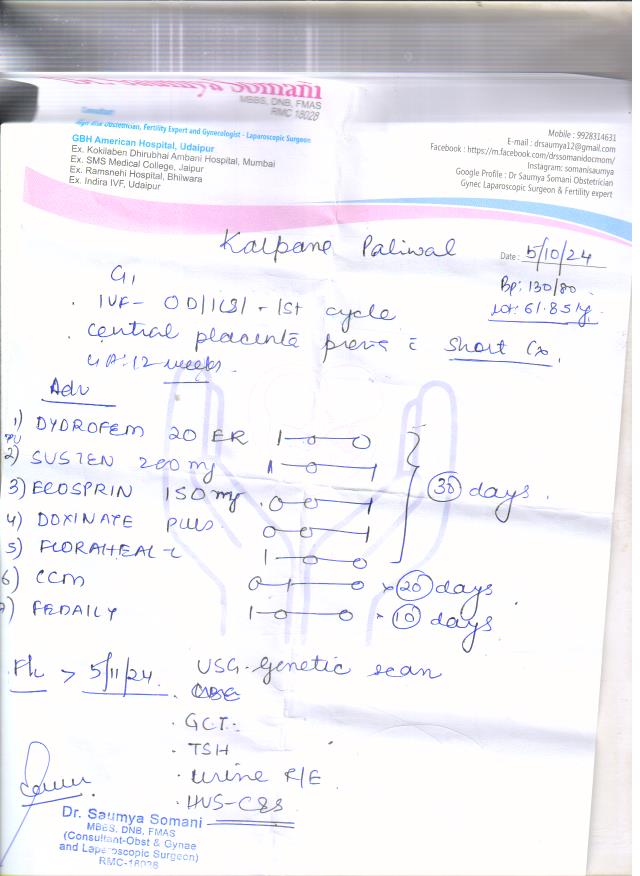 Dr. Saumya Somani
MBBS, DNB, FMAS
RMC 18028
Consultant
Obstetrician, Fertility Expert and Gynecologist - Laparoscopic Surgeon
GBH American Hospital, Udaipur
Ex. Kokilaben Dhirubhai Ambani Hospital, Mumbai
Ex. SMS Medical College, Jaipur
Ex. Ramsnehi Hospital, Bhilwara
Ex. Indira IVF, Udaipur
Mobile : 9928314631
E-mail : drsaumya12@gmail.com
Facebook : https://m.facebook.com/drssomanidocmom/
Instagram: somanisaumya
Google Profile : Dr Saumya Somani Obstetrician
Gynec Laparoscopic Surgeon & Fertility expert
Kalpane Paliwal
Date : 5/10/24
Bp: 130/80
wt: 61.85 kg
G1
IVF - OD/ICSI - 1st cycle
central placenta previa c̄ short Cx.
GA: 12 weeks.
Adv
1) DYDROFEM 20 ER 1-0-0
2) SUSTEN 200 mg 1-0-1
3) ECOSPRIN 150 mg 0-0-1
4) DOXINATE PLUS 0-0-1
30 days.
5) FLORAHEAL-L 1-0-0
6) CCM 0-1-0 x 20 days
7) FEDAILY 1-0-0 x 10 days
F/u > 5/11/24. USG-Genetic scan
CBC
. GCT.
. TSH
. Urine R/E
. HVS-C&S
Dr. Saumya Somani
MBBS, DNB, FMAS
(Consultant-Obst & Gynae
and Laparoscopic Surgeon)
RMC-18028